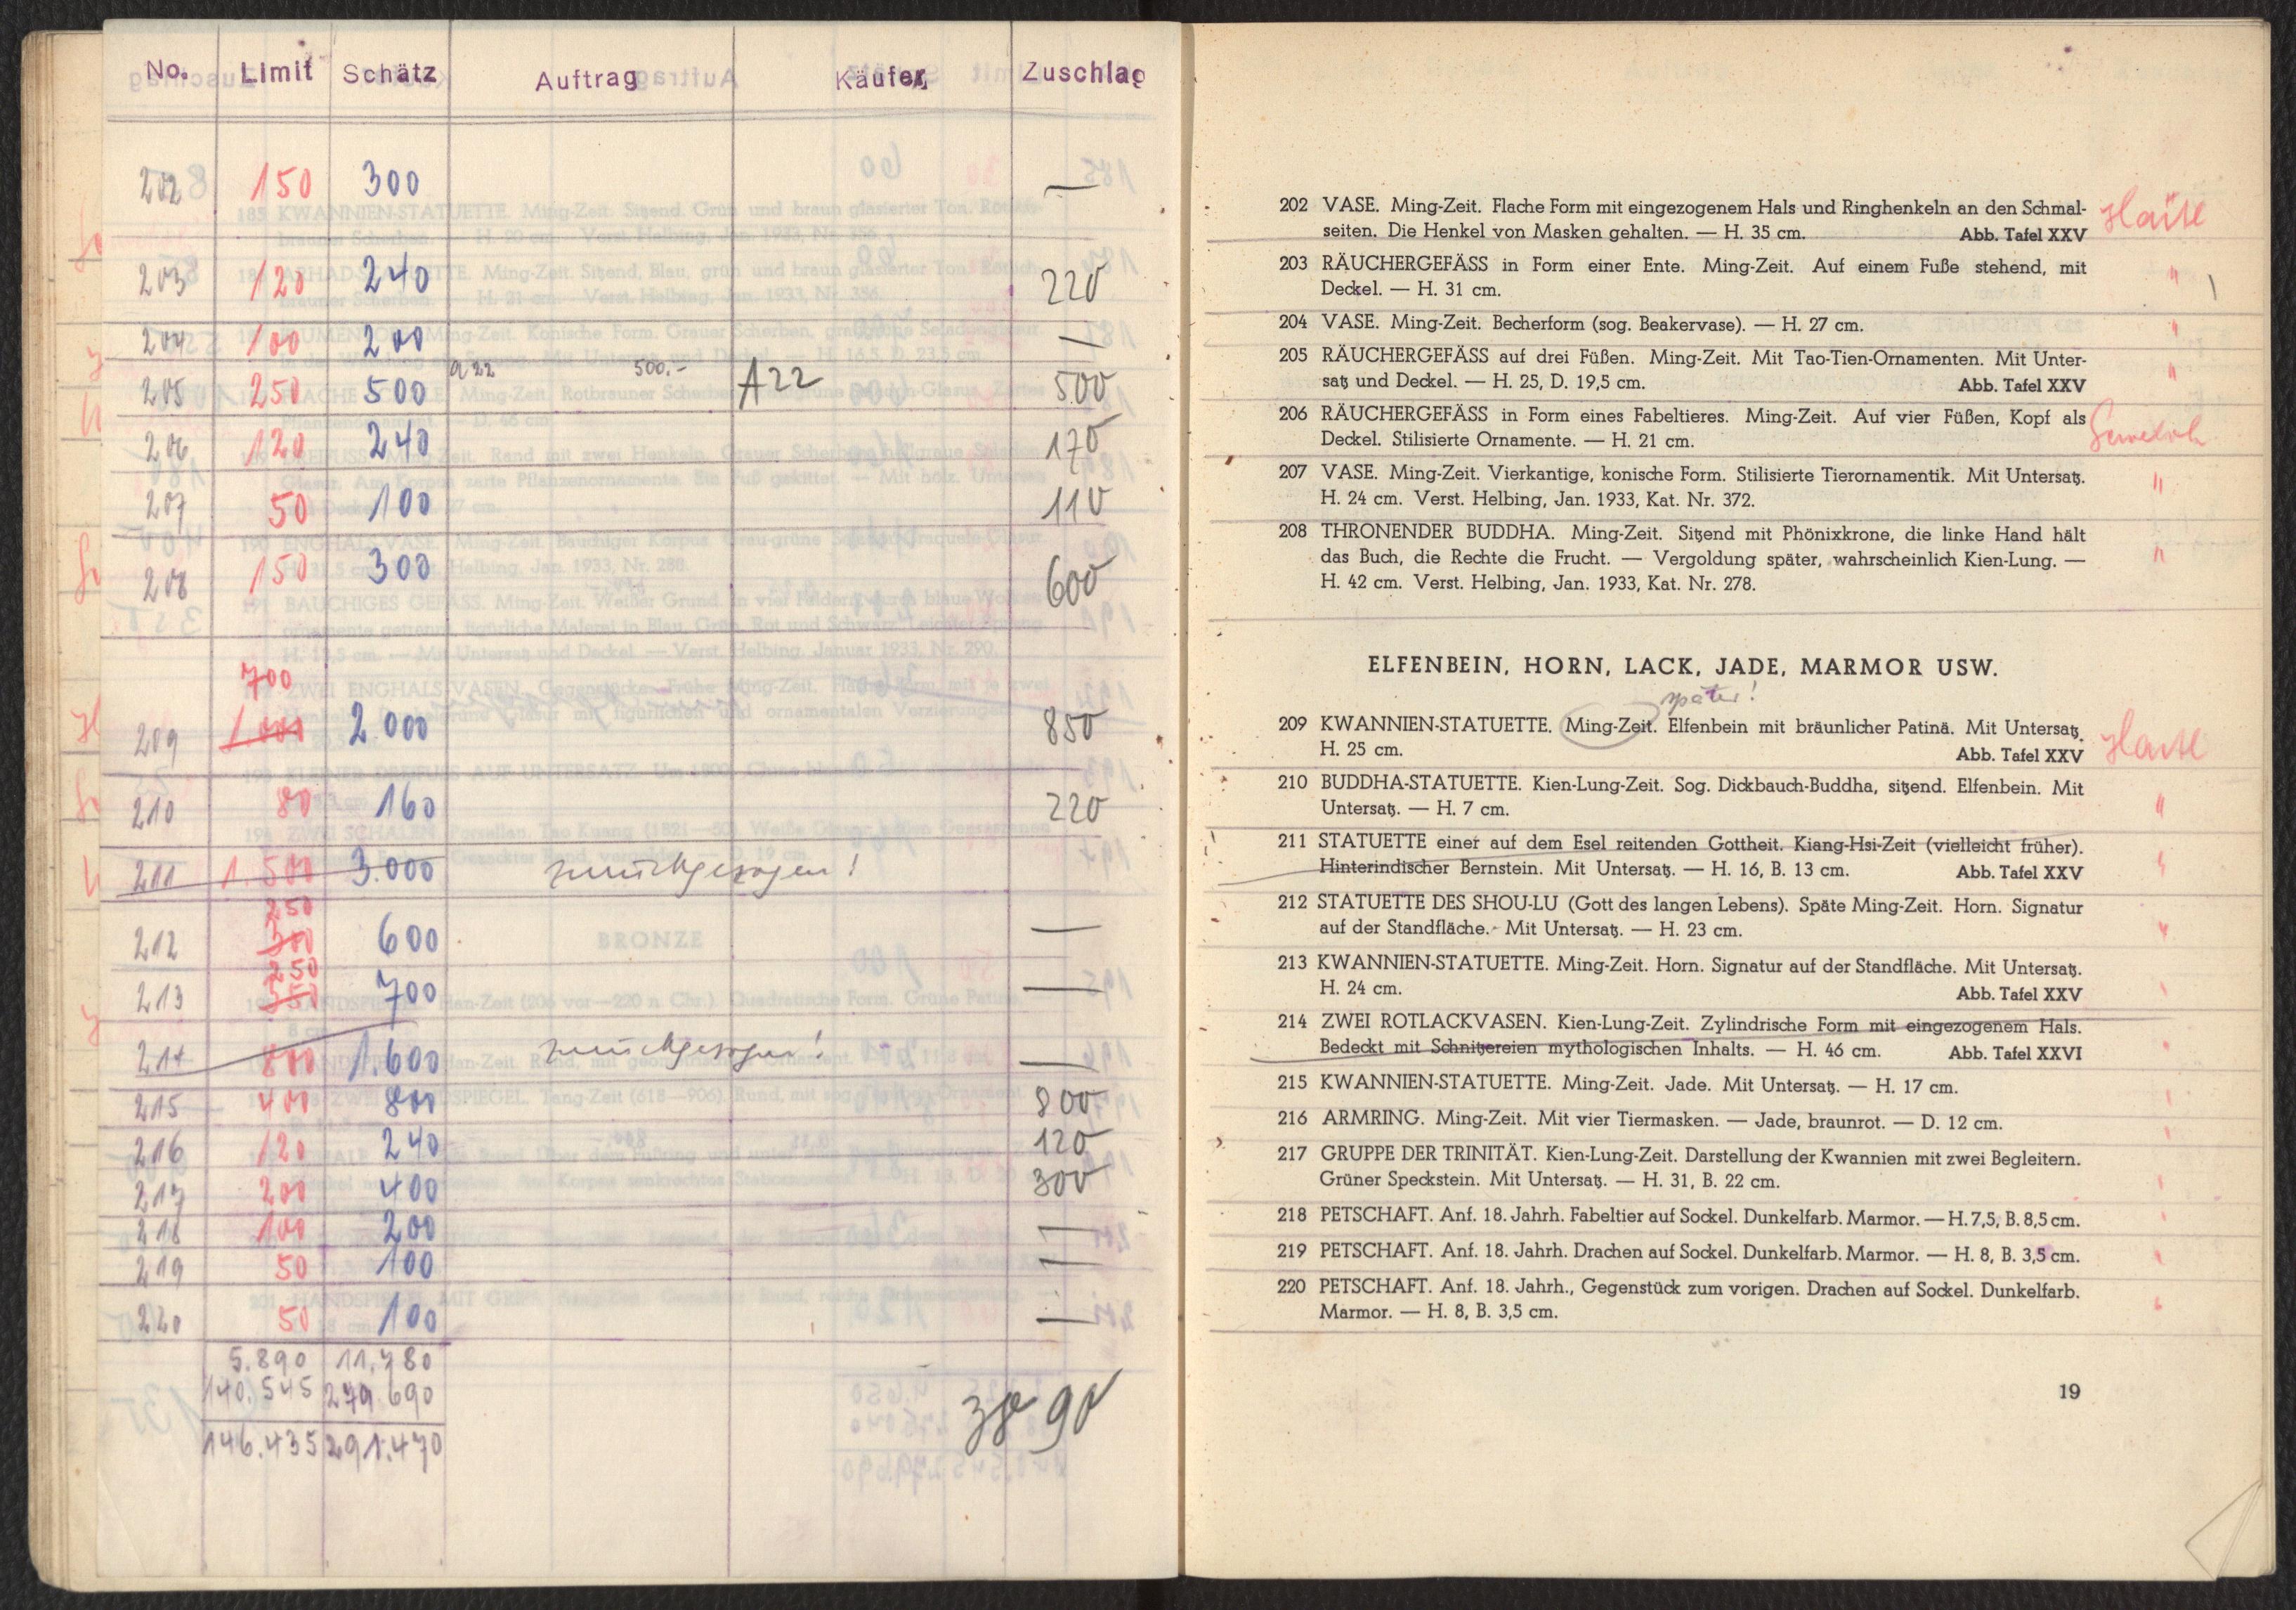 No. Limit Schätz Auftrag Käufer Zuschlag
202 150 300 —
203 120 240 220
204 100 200 —
205 250 500 a 22 500.- A 22 500
206 120 240 170
207 50 100 110
208 150 300 600
700
209 1.000 2.000 850
210 80 160 220
211 1.500 3.000 zurückgezogen!
250
212 300 600 —
250
213 350 700 —
214 800 1.600 zurückgezogen! —
215 400 800 800
216 120 240 120
217 200 400 300
218 100 200 —
219 50 100 —
220 50 100 —
5.890 11.780
140.545 279.690
146.435 291.470
3890
202 VASE. Ming-Zeit. Flache Form mit eingezogenem Hals und Ringhenkeln an den Schmal-
seiten. Die Henkel von Masken gehalten. — H. 35 cm. Abb. Tafel XXV
203 RÄUCHERGEFÄSS in Form einer Ente. Ming-Zeit. Auf einem Fuße stehend, mit "
Deckel. — H. 31 cm.
204 VASE. Ming-Zeit. Becherform (sog. Beakervase). — H. 27 cm. "
205 RÄUCHERGEFÄSS auf drei Füßen. Ming-Zeit. Mit Tao-Tien-Ornamenten. Mit Unter- "
satz und Deckel. — H. 25, D. 19,5 cm. Abb. Tafel XXV
206 RÄUCHERGEFÄSS in Form eines Fabeltieres. Ming-Zeit. Auf vier Füßen, Kopf als
Deckel. Stilisierte Ornamente. — H. 21 cm.
207 VASE. Ming-Zeit. Vierkantige, konische Form. Stilisierte Tierornamentik. Mit Untersatz. "
H. 24 cm. Verst. Helbing, Jan. 1933, Kat. Nr. 372.
208 THRONENDER BUDDHA. Ming-Zeit. Sitzend mit Phönixkrone, die linke Hand hält
das Buch, die Rechte die Frucht. — Vergoldung später, wahrscheinlich Kien-Lung. — "
H. 42 cm. Verst. Helbing, Jan. 1933, Kat. Nr. 278.
ELFENBEIN, HORN, LACK, JADE, MARMOR USW.
später!
209 KWANNIEN-STATUETTE. Ming-Zeit. Elfenbein mit bräunlicher Patinä. Mit Untersatz.
H. 25 cm. Abb. Tafel XXV
210 BUDDHA-STATUETTE. Kien-Lung-Zeit. Sog. Dickbauch-Buddha, sitzend. Elfenbein. Mit
Untersatz. — H. 7 cm. "
211 STATUETTE einer auf dem Esel reitenden Gottheit. Kiang-Hsi-Zeit (vielleicht früher).
Hinterindischer Bernstein. Mit Untersatz. — H. 16, B. 13 cm. Abb. Tafel XXV "
212 STATUETTE DES SHOU-LU (Gott des langen Lebens). Späte Ming-Zeit. Horn. Signatur
auf der Standfläche. Mit Untersatz. — H. 23 cm. "
213 KWANNIEN-STATUETTE. Ming-Zeit. Horn. Signatur auf der Standfläche. Mit Untersatz.
H. 24 cm. Abb. Tafel XXV
214 ZWEI ROTLACKVASEN. Kien-Lung-Zeit. Zylindrische Form mit eingezogenem Hals.
Bedeckt mit Schnitzereien mythologischen Inhalts. — H. 46 cm. Abb. Tafel XXVI
215 KWANNIEN-STATUETTE. Ming-Zeit. Jade. Mit Untersatz. — H. 17 cm.
216 ARMRING. Ming-Zeit. Mit vier Tiermasken. — Jade, braunrot. — D. 12 cm.
217 GRUPPE DER TRINITÄT. Kien-Lung-Zeit. Darstellung der Kwannien mit zwei Begleitern.
Grüner Speckstein. Mit Untersatz. — H. 31, B. 22 cm.
218 PETSCHAFT. Anf. 18. Jahrh. Fabeltier auf Sockel. Dunkelfarb. Marmor. — H. 7,5, B. 8,5 cm.
219 PETSCHAFT. Anf. 18. Jahrh. Drachen auf Sockel. Dunkelfarb. Marmor. — H. 8, B. 3,5 cm.
220 PETSCHAFT. Anf. 18. Jahrh., Gegenstück zum vorigen. Drachen auf Sockel. Dunkelfarb.
Marmor. — H. 8, B. 3,5 cm.
19